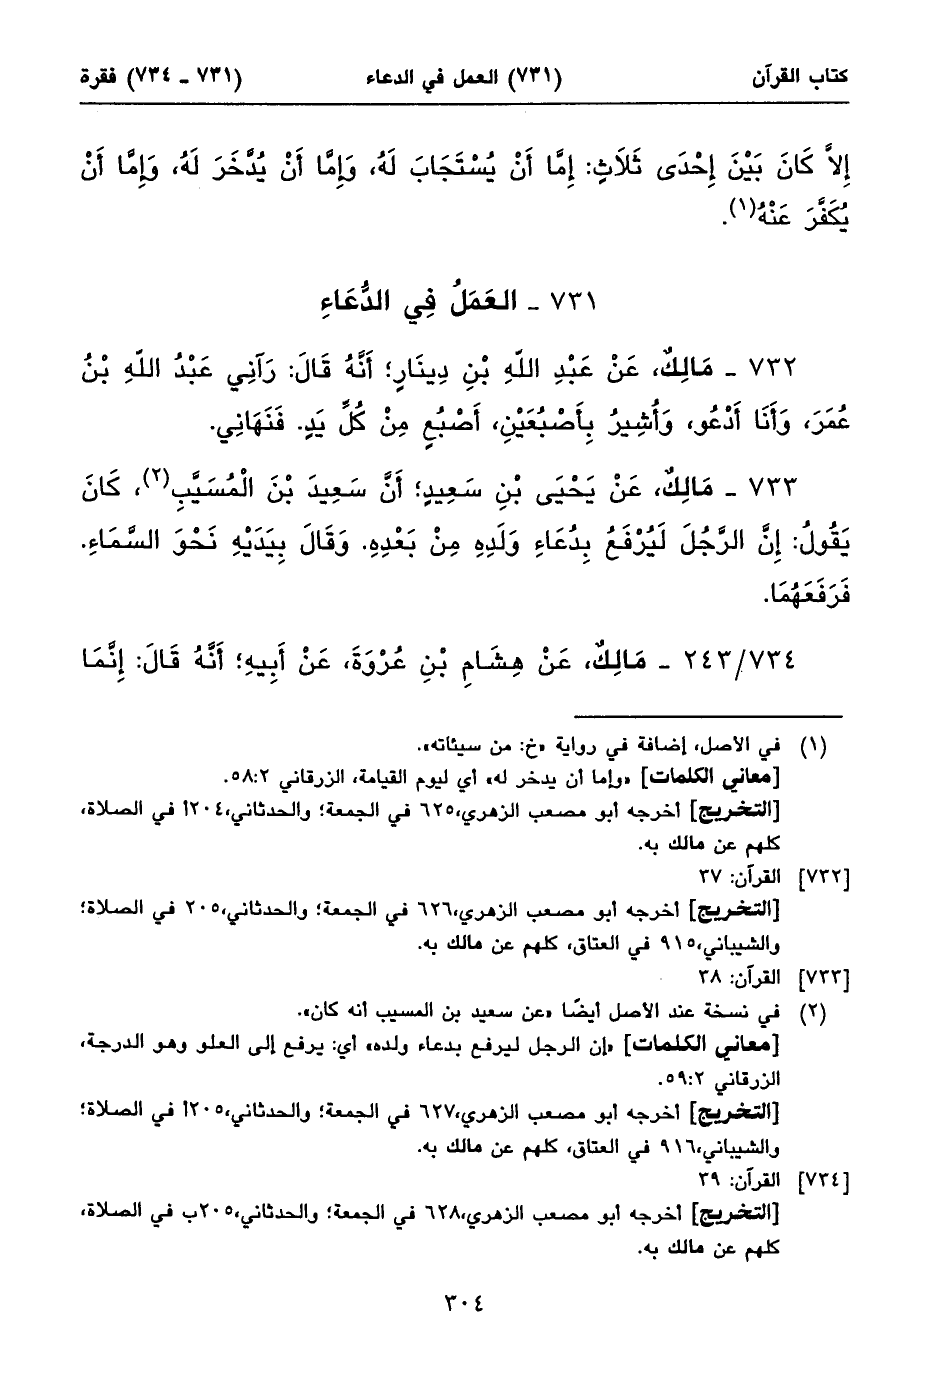 كتاب القرآن (٧٣١) العمل في الدعاء (٧٣١ - ٧٣٤) فقرة
إِلاَّ كَانَ بَيْنَ إِحْدَى ثَلَاثٍ: إِمَّا أَنْ يُسْتَجَابَ لَهُ، وَإِمَّا أَنْ يُدَّخَرَ لَهُ، وَإِمَّا أَنْ
يُكَفَّرَ عَنْهُ(١).
٧٣١ - العَمَلُ فِي الدُّعَاءِ
٧٣٢ - مَالِكٌ، عَنْ عَبْدِ اللّهِ بْنِ دِينَارٍ؛ أَنَّهُ قَالَ: رَآنِي عَبْدُ اللّهِ بْنُ
عُمَرَ، وَأَنَا أَدْعُو، وَأُشِيرُ بِأَصْبُعَيْنِ، أَصْبُعٍ مِنْ كُلِّ يَدٍ. فَنَهَانِي.
٧٣٣ - مَالِكٌ، عَنْ يَحْيَى بْنِ سَعِيدٍ؛ أَنَّ سَعِيدَ بْنَ الْمُسَيَّبِ(٢)، كَانَ
يَقُولُ: إِنَّ الرَّجُلَ لَيُرْفَعُ بِدُعَاءِ وَلَدِهِ مِنْ بَعْدِهِ. وَقَالَ بِيَدَيْهِ نَحْوَ السَّمَاءِ.
فَرَفَعَهُمَا.
٢٤٣/٧٣٤ - مَالِكٌ، عَنْ هِشَامِ بْنِ عُرْوَةَ، عَنْ أَبِيهِ؛ أَنَّهُ قَالَ: إِنَّمَا
(١) في الأصل، إضافة في رواية «خ: من سيئاته».
[معاني الكلمات] «وإما أن يدخر له» أي ليوم القيامة، الزرقاني ٥٨:٢.
[التخريج] أخرجه أبو مصعب الزهري،٦٢٥ في الجمعة؛ والحدثاني،٢٠٤أ في الصلاة،
كلهم عن مالك به.
[٧٣٢] القرآن: ٣٧
[التخريج] أخرجه أبو مصعب الزهري،٦٢٦ في الجمعة؛ والحدثاني،٢٠٥ في الصلاة؛
والشيباني،٩١٥ في العتاق، كلهم عن مالك به.
[٧٣٣] القرآن: ٣٨
(٢) في نسخة عند الأصل أيضًا «عن سعيد بن المسيب أنه كان».
[معاني الكلمات] «إن الرجل ليرفع بدعاء ولده» أي: يرفع إلى العلو وهو الدرجة،
الزرقاني ٥٩:٢.
[التخريج] أخرجه أبو مصعب الزهري،٦٢٧ في الجمعة؛ والحدثاني،٢٠٥أ في الصلاة؛
والشيباني،٩١٦ في العتاق، كلهم عن مالك به.
[٧٣٤] القرآن: ٣٩
[التخريج] أخرجه أبو مصعب الزهري،٦٢٨ في الجمعة؛ والحدثاني،٢٠٥ب في الصلاة،
كلهم عن مالك به.
٣٠٤